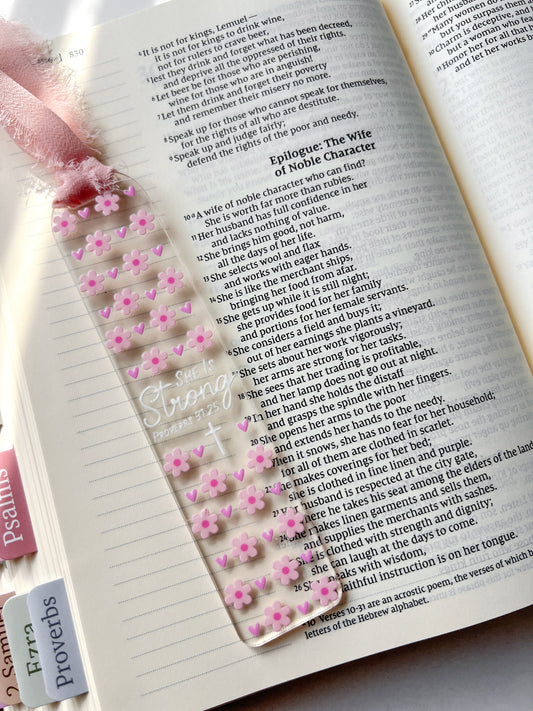 830
4 It is not for kings, Lemuel—
it is not for kings to drink wine,
not for rulers to crave beer,
5 lest they drink and forget what has been decreed,
and deprive all the oppressed of their rights.
6 Let beer be for those who are perishing,
wine for those who are in anguish!
7 Let them drink and forget their poverty
and remember their misery no more.
8 Speak up for those who cannot speak for themselves,
for the rights of all who are destitute.
9 Speak up and judge fairly;
defend the rights of the poor and needy.
Epilogue: The Wife
of Noble Character
10 a A wife of noble character who can find?
She is worth far more than rubies.
11 Her husband has full confidence in her
and lacks nothing of value.
12 She brings him good, not harm,
all the days of her life.
13 She selects wool and flax
and works with eager hands.
14 She is like the merchant ships,
bringing her food from afar.
15 She gets up while it is still night;
she provides food for her family
and portions for her female servants.
16 She considers a field and buys it;
out of her earnings she plants a vineyard.
17 She sets about her work vigorously;
her arms are strong for her tasks.
18 She sees that her trading is profitable,
and her lamp does not go out at night.
19 In her hand she holds the distaff
and grasps the spindle with her fingers.
20 She opens her arms to the poor
and extends her hands to the needy.
When it snows, she has no fear for her household;
for all of them are clothed in scarlet.
She makes coverings for her bed;
she is clothed in fine linen and purple.
husband is respected at the city gate,
where he takes his seat among the elders of the land
She makes linen garments and sells them,
and supplies the merchants with sashes.
She is clothed with strength and dignity;
she can laugh at the days to come.
26 She speaks with wisdom,
faithful instruction is on her tongue.
10 Verses 10-31 are an acrostic poem, the verses of which b
letters of the Hebrew alphabet.
SHE IS
Strong
PROVERBS 31:25
Psalms
2 Samu
Ezra
Proverbs